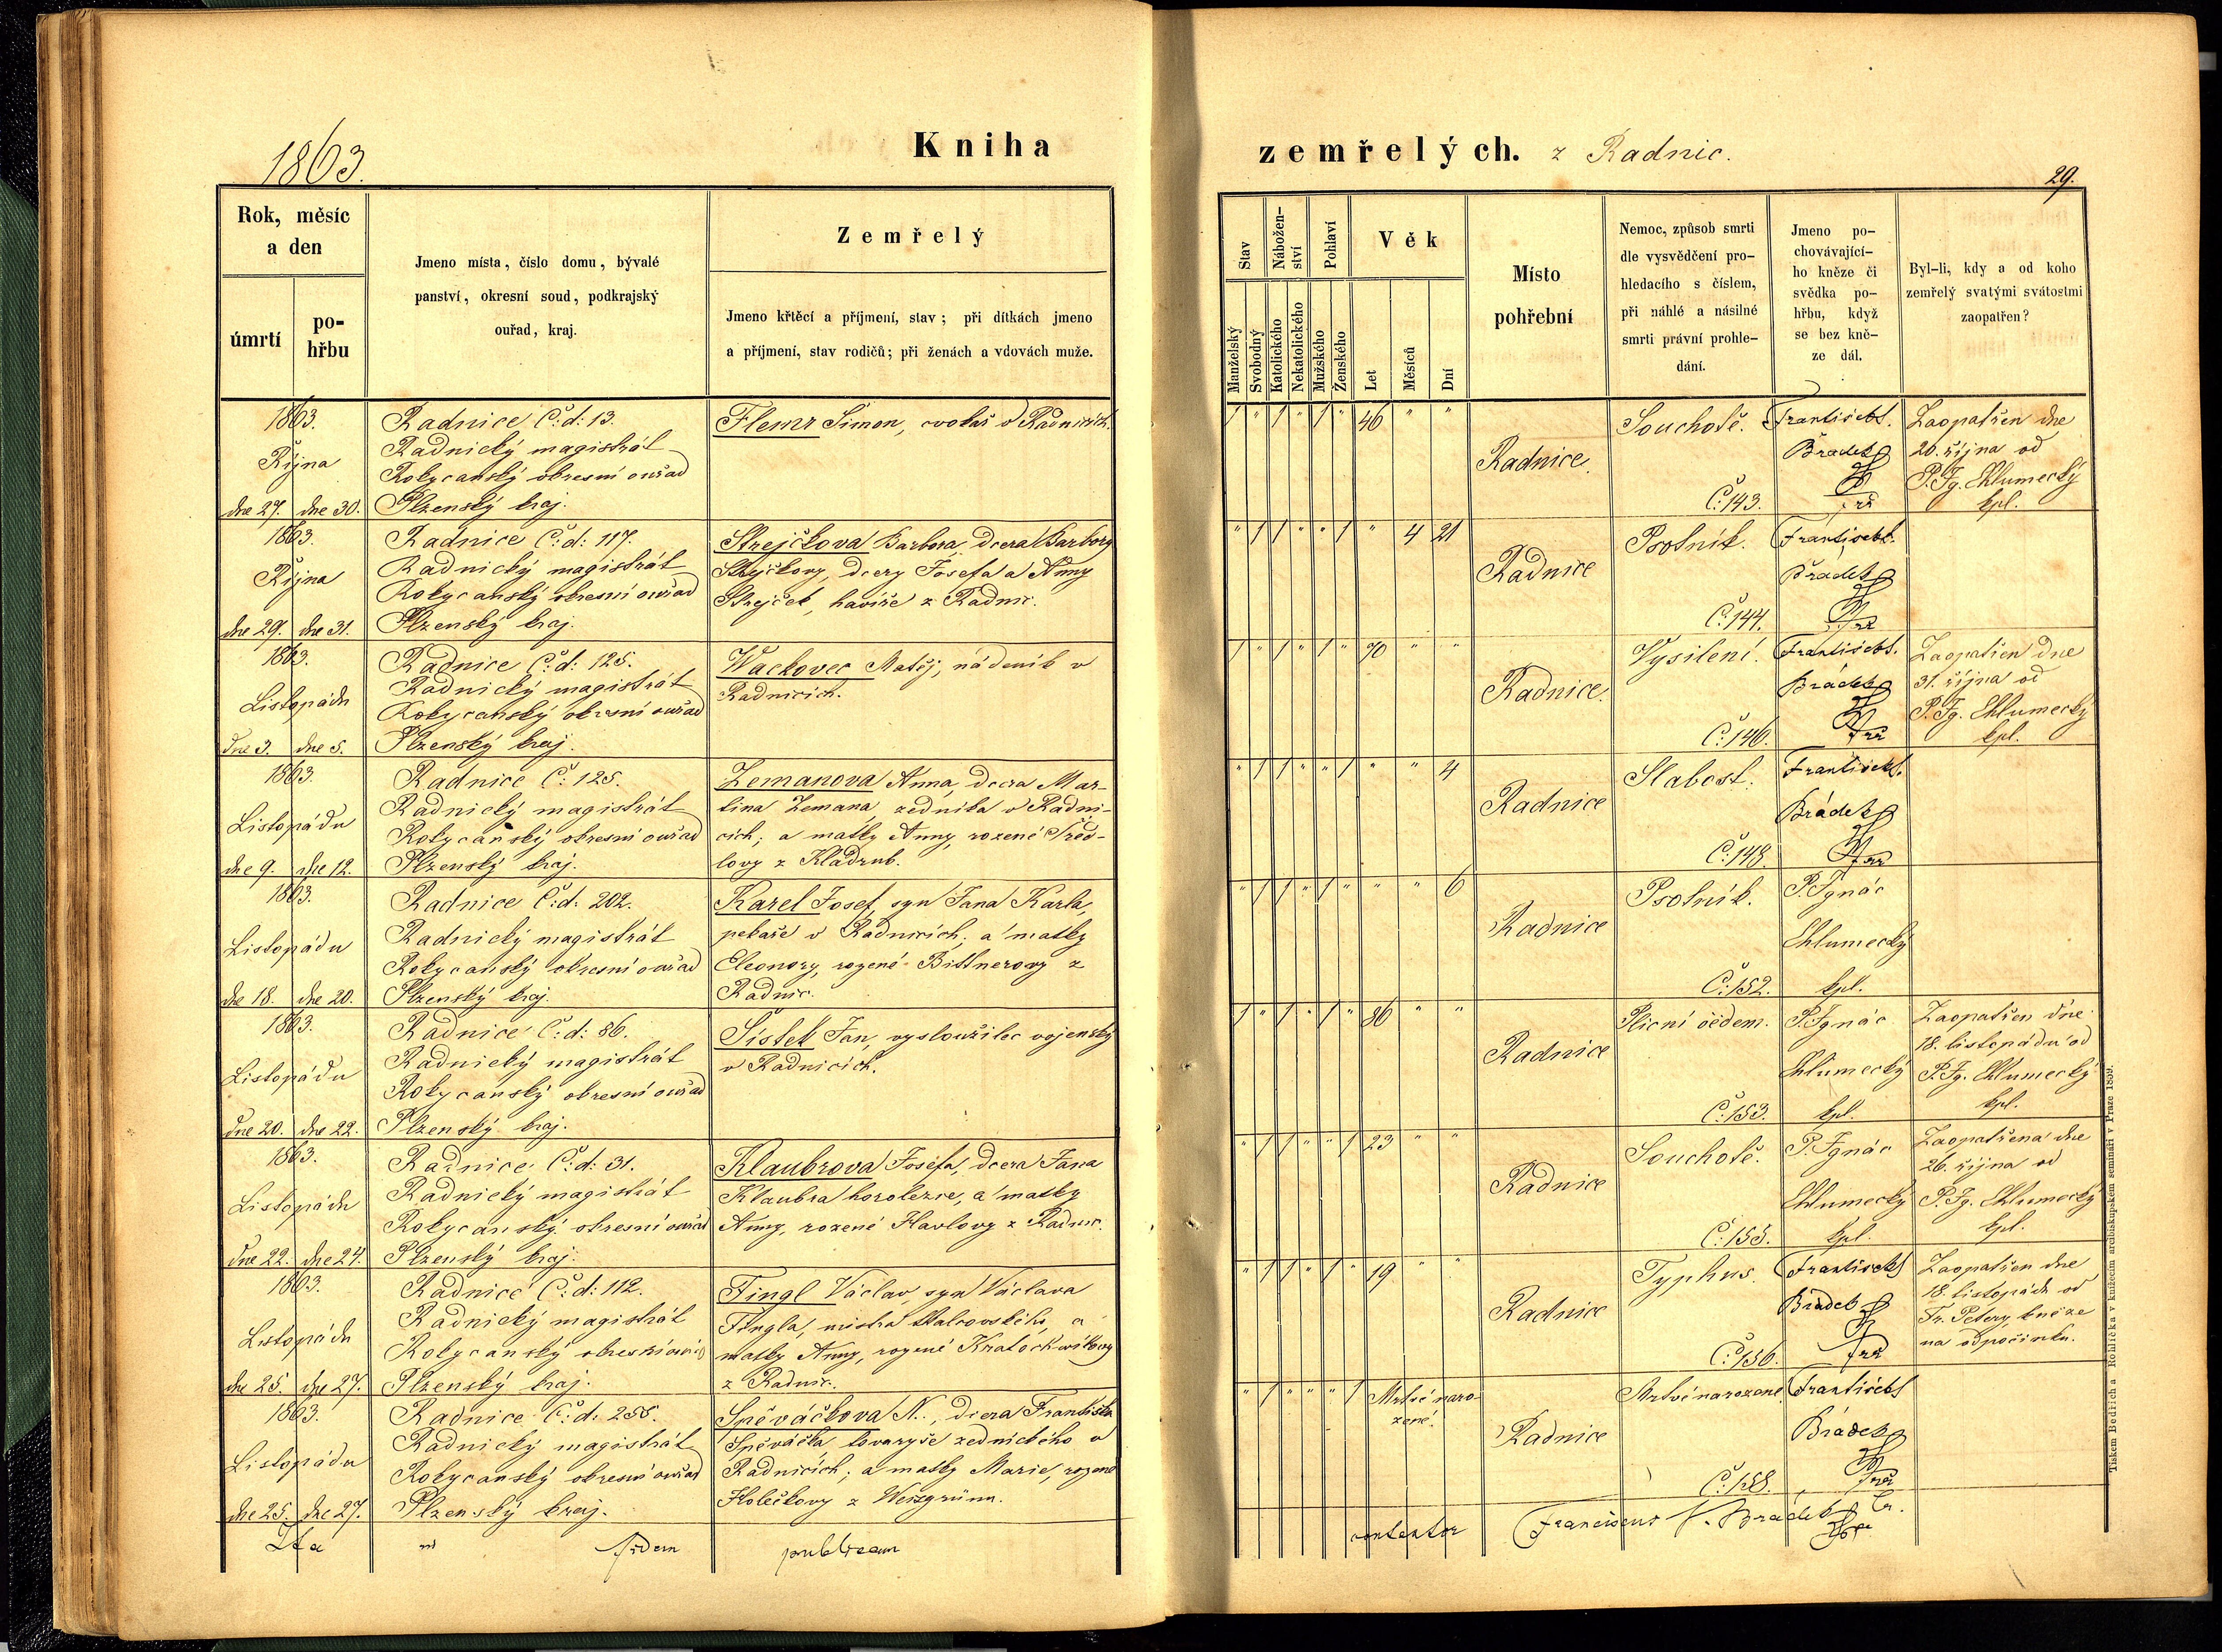 1863.
Kniha
zemřelých. z Radnic.
29.
Rok, měsíc
a den
úmrtí
po-
hřbu
Jmeno místa, číslo domu, bývalé
panství, okresní soud, podkrajský
ouřad, kraj.
Zemřelý
Jmeno křtěcí a příjmení, stav; při dítkách jmeno
a příjmení, stav rodičů; při ženách a vdovách muže.
Stav
Nábožen-
ství
Pohlaví
Věk
Manželský
Svobodný
Katolického
Nekatolického
Mužského
Ženského
Let
Měsíců
Dní
Místo
pohřební
Nemoc, způsob smrti
dle vysvědčení pro-
hledacího s číslem,
při náhlé a násilné
smrti právní prohle-
dání.
Jmeno po-
chovávající-
ho kněze či
svědka po-
hřbu, když
se bez kně-
ze dál.
Byl-li, kdy a od koho
zemřelý svatými svátostmi
zaopatřen?
1863.
Října
dne 27. dne 30.
Radnice Č: d: 13.
Radnický magistrát
Rokycanský okresní ouřad
Plzenský kraj.
Flemr Šimon, cvokař v Radnicích.
1 " 1 " 1 " 46 " "
Radnice.
Souchotě.
Č: 143.
František
Brádek
Zaopatřen dne
20. října od
P. Ig. Chlumecký
kpl.
1863.
Října
dne 29. dne 31.
Radnice Č: d: 117.
Radnický magistrát
Rokycanský okresní ouřad
Plzenský kraj.
Strejčkova Barbora, dcera Barbory
Strejčkovy, dcery Josefa a Anny
Strejček, havíře z Radnic.
" 1 1 " " 1 " 4 21
Radnice
Psotník.
Č: 144.
František
Brádek
1863.
Listopádu
dne 3. dne 5.
Radnice Č: d: 125.
Radnický magistrát
Rokycanský okresní ouřad
Plzenský kraj.
Wackovec Matěj, nádeník v
Radnicích.
1 " 1 " 1 " 70 " "
Radnice.
Vysílení.
Č: 146.
František
Brádek
Zaopatřen dne
31. října od
P. Ig. Chlumecký
kpl.
1863.
Listopádu
dne 9. dne 12.
Radnice Č: 125.
Radnický magistrát
Rokycanský okresní ouřad
Plzenský kraj.
Zemanova Anna, dcera Mar-
tina Zemana, zedníka v Radni-
cích; a matky Anny, rozené
lovy z Kladrub.
" 1 1 " " 1 " " 4
Radnice
Slabost.
Č: 148.
František
Brádek
1863.
Listopádu
dne 18. dne 20.
Radnice Č: d: 202.
Radnický magistrát
Rokycanský okresní ouřad
Plzenský kraj.
Karel Josef, syn Jana Karla,
pekaře v Radnicích; a matky
Eleonory, rozené Bittnerovy z
Radnic.
" 1 1 " 1 " " " 6
Radnice
Psotník.
Č: 152.
P. Ignác
Chlumecký
kpl.
1863.
Listopádu
dne 20. dne 22.
Radnice Č: d: 86.
Radnický magistrát
Rokycanský okresní ouřad
Plzenský kraj.
Šístek Jan, vysloužilec vojenský
v Radnicích.
1 " 1 " 1 " 86 " "
Radnice
Plicní oedem.
Č: 153.
P. Ignác
Chlumecký
kpl.
Zaopatřen dne
18. listopádu od
P. Ig. Chlumecký
kpl.
1863.
Listopádu
dne 22. dne 24.
Radnice Č: d: 31.
Radnický magistrát
Rokycanský okresní ouřad
Plzenský kraj.
Klaubrova Josefa, dcera Jana
Klaubra horolezce, a matky
Anny, rozené Havlovy z Radnic.
" 1 1 " " 1 23 " "
Radnice
Souchotě.
Č: 155.
P. Ignác
Chlumecký
kpl.
Zaopatřena dne
26. října od
P. Ig. Chlumecký
kpl.
1863.
Listopádu
dne 25. dne 27.
Radnice Č: d: 112.
Radnický magistrát
Rokycanský okresní ouřad
Plzenský kraj.
Fingl Václav, syn Václava
Fingla, mistra tkalcovského, a
matky Anny, rozené
z Radnic.
" 1 1 " 1 " 19 " "
Radnice
Typhus.
Č: 156.
František
Brádek
Zaopatřen dne
18. listopádu od
Fr. Petery, kněze
na odpočinku.
1863.
Listopádu
dne 25. dne 27.
Radnice Č: d: 255.
Radnický magistrát
Rokycanský okresní ouřad
Plzenský kraj.
Spěváčkova N., dcera Františka
Spěváčka, tovaryše zednického v
Radnicích; a matky Marie, rozené
Holečkovy z Weizgrünn.
" 1 " " " 1 Mrtvé naro-
zené.
Radnice
Mrtvé narozené
Č: 158.
František
Brádek
Ita
fidem
publicam
contestor
Franciscus Brádek
Tiskem Bedřicha Rohlíčka v knížecím arcibiskupském semináři v Praze 1859.